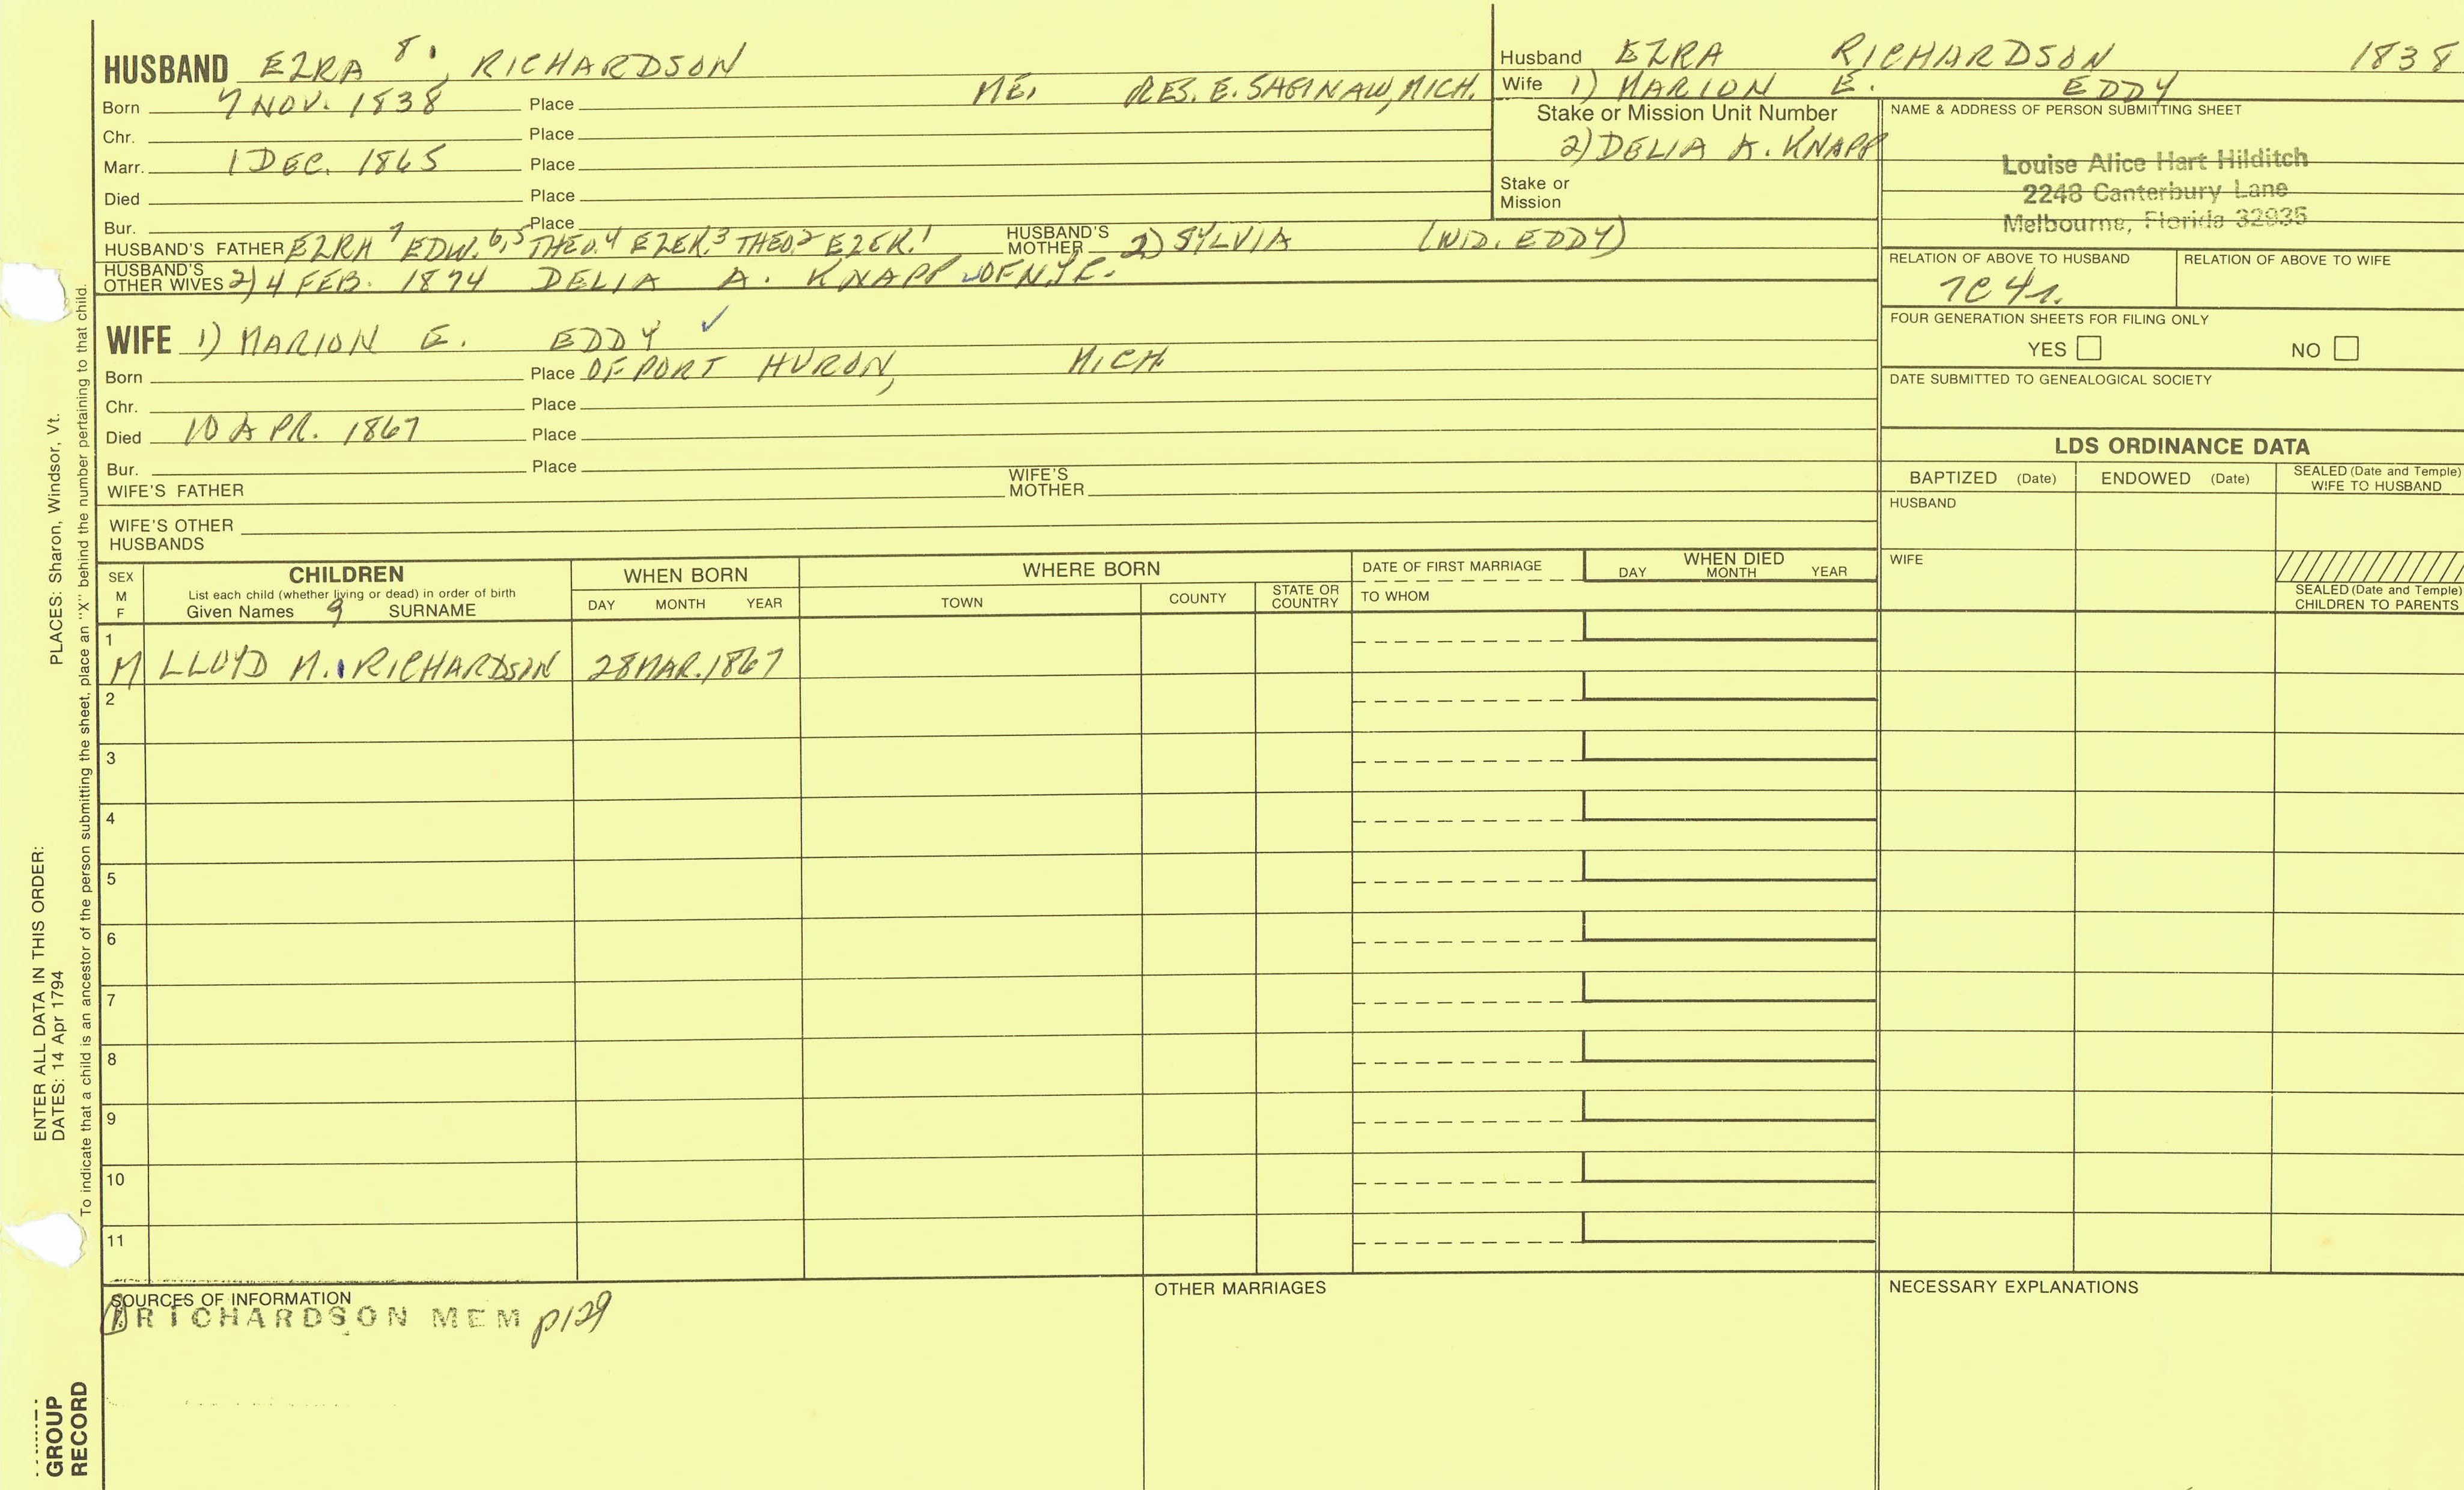 HUSBAND EZRA 8. RICHARDSON
Born 7 NOV. 1838 Place ME. RES. E. SAGINAW, MICH.
Chr. Place
Marr. 1 DEC. 1865 Place
Died Place
Bur. Place
HUSBAND'S FATHER EZRA 7 EDW. 6,5 THEO. 4 EZEK. 3 THEO. 2 EZEK. 1 HUSBAND'S MOTHER 2) SYLVIA (WID. EDDY)
HUSBAND'S OTHER WIVES 2) 4 FEB. 1874 DELIA A. KNAPP OF N.Y.C.
WIFE 1) MARION E. EDDY ✓
Born Place OF PORT HURON, MICH
Chr. Place
Died 10 APR. 1867 Place
Bur. Place
WIFE'S FATHER WIFE'S MOTHER
WIFE'S OTHER HUSBANDS
Husband EZRA RICHARDSON 1838
Wife 1) MARION E. EDDY
Stake or Mission Unit Number
2) DELIA A. KNAPP
Stake or Mission
NAME & ADDRESS OF PERSON SUBMITTING SHEET
Louise Alice Hart Hilditch
2248 Canterbury Lane
Melbourne, Florida 32935
RELATION OF ABOVE TO HUSBAND RELATION OF ABOVE TO WIFE
7C 4r.
FOUR GENERATION SHEETS FOR FILING ONLY
YES NO
DATE SUBMITTED TO GENEALOGICAL SOCIETY
LDS ORDINANCE DATA
BAPTIZED (Date) ENDOWED (Date) SEALED (Date and Temple) WIFE TO HUSBAND
HUSBAND
WIFE
SEALED (Date and Temple) CHILDREN TO PARENTS
SEX M F
CHILDREN
List each child (whether living or dead) in order of birth
Given Names 9 SURNAME
WHEN BORN
DAY MONTH YEAR
WHERE BORN
TOWN COUNTY STATE OR COUNTRY
DATE OF FIRST MARRIAGE
TO WHOM
WHEN DIED
DAY MONTH YEAR
1
M LLOYD M. RICHARDSON 28 MAR. 1867
2
3
4
5
6
7
8
9
10
11
SOURCES OF INFORMATION
RICHARDSON MEM p129
OTHER MARRIAGES
NECESSARY EXPLANATIONS
ENTER ALL DATA IN THIS ORDER:
DATES: 14 Apr 1794 PLACES: Sharon, Windsor, Vt.
To indicate that a child is an ancestor of the person submitting the sheet, place an "X" behind the number pertaining to that child.
GROUP
RECORD